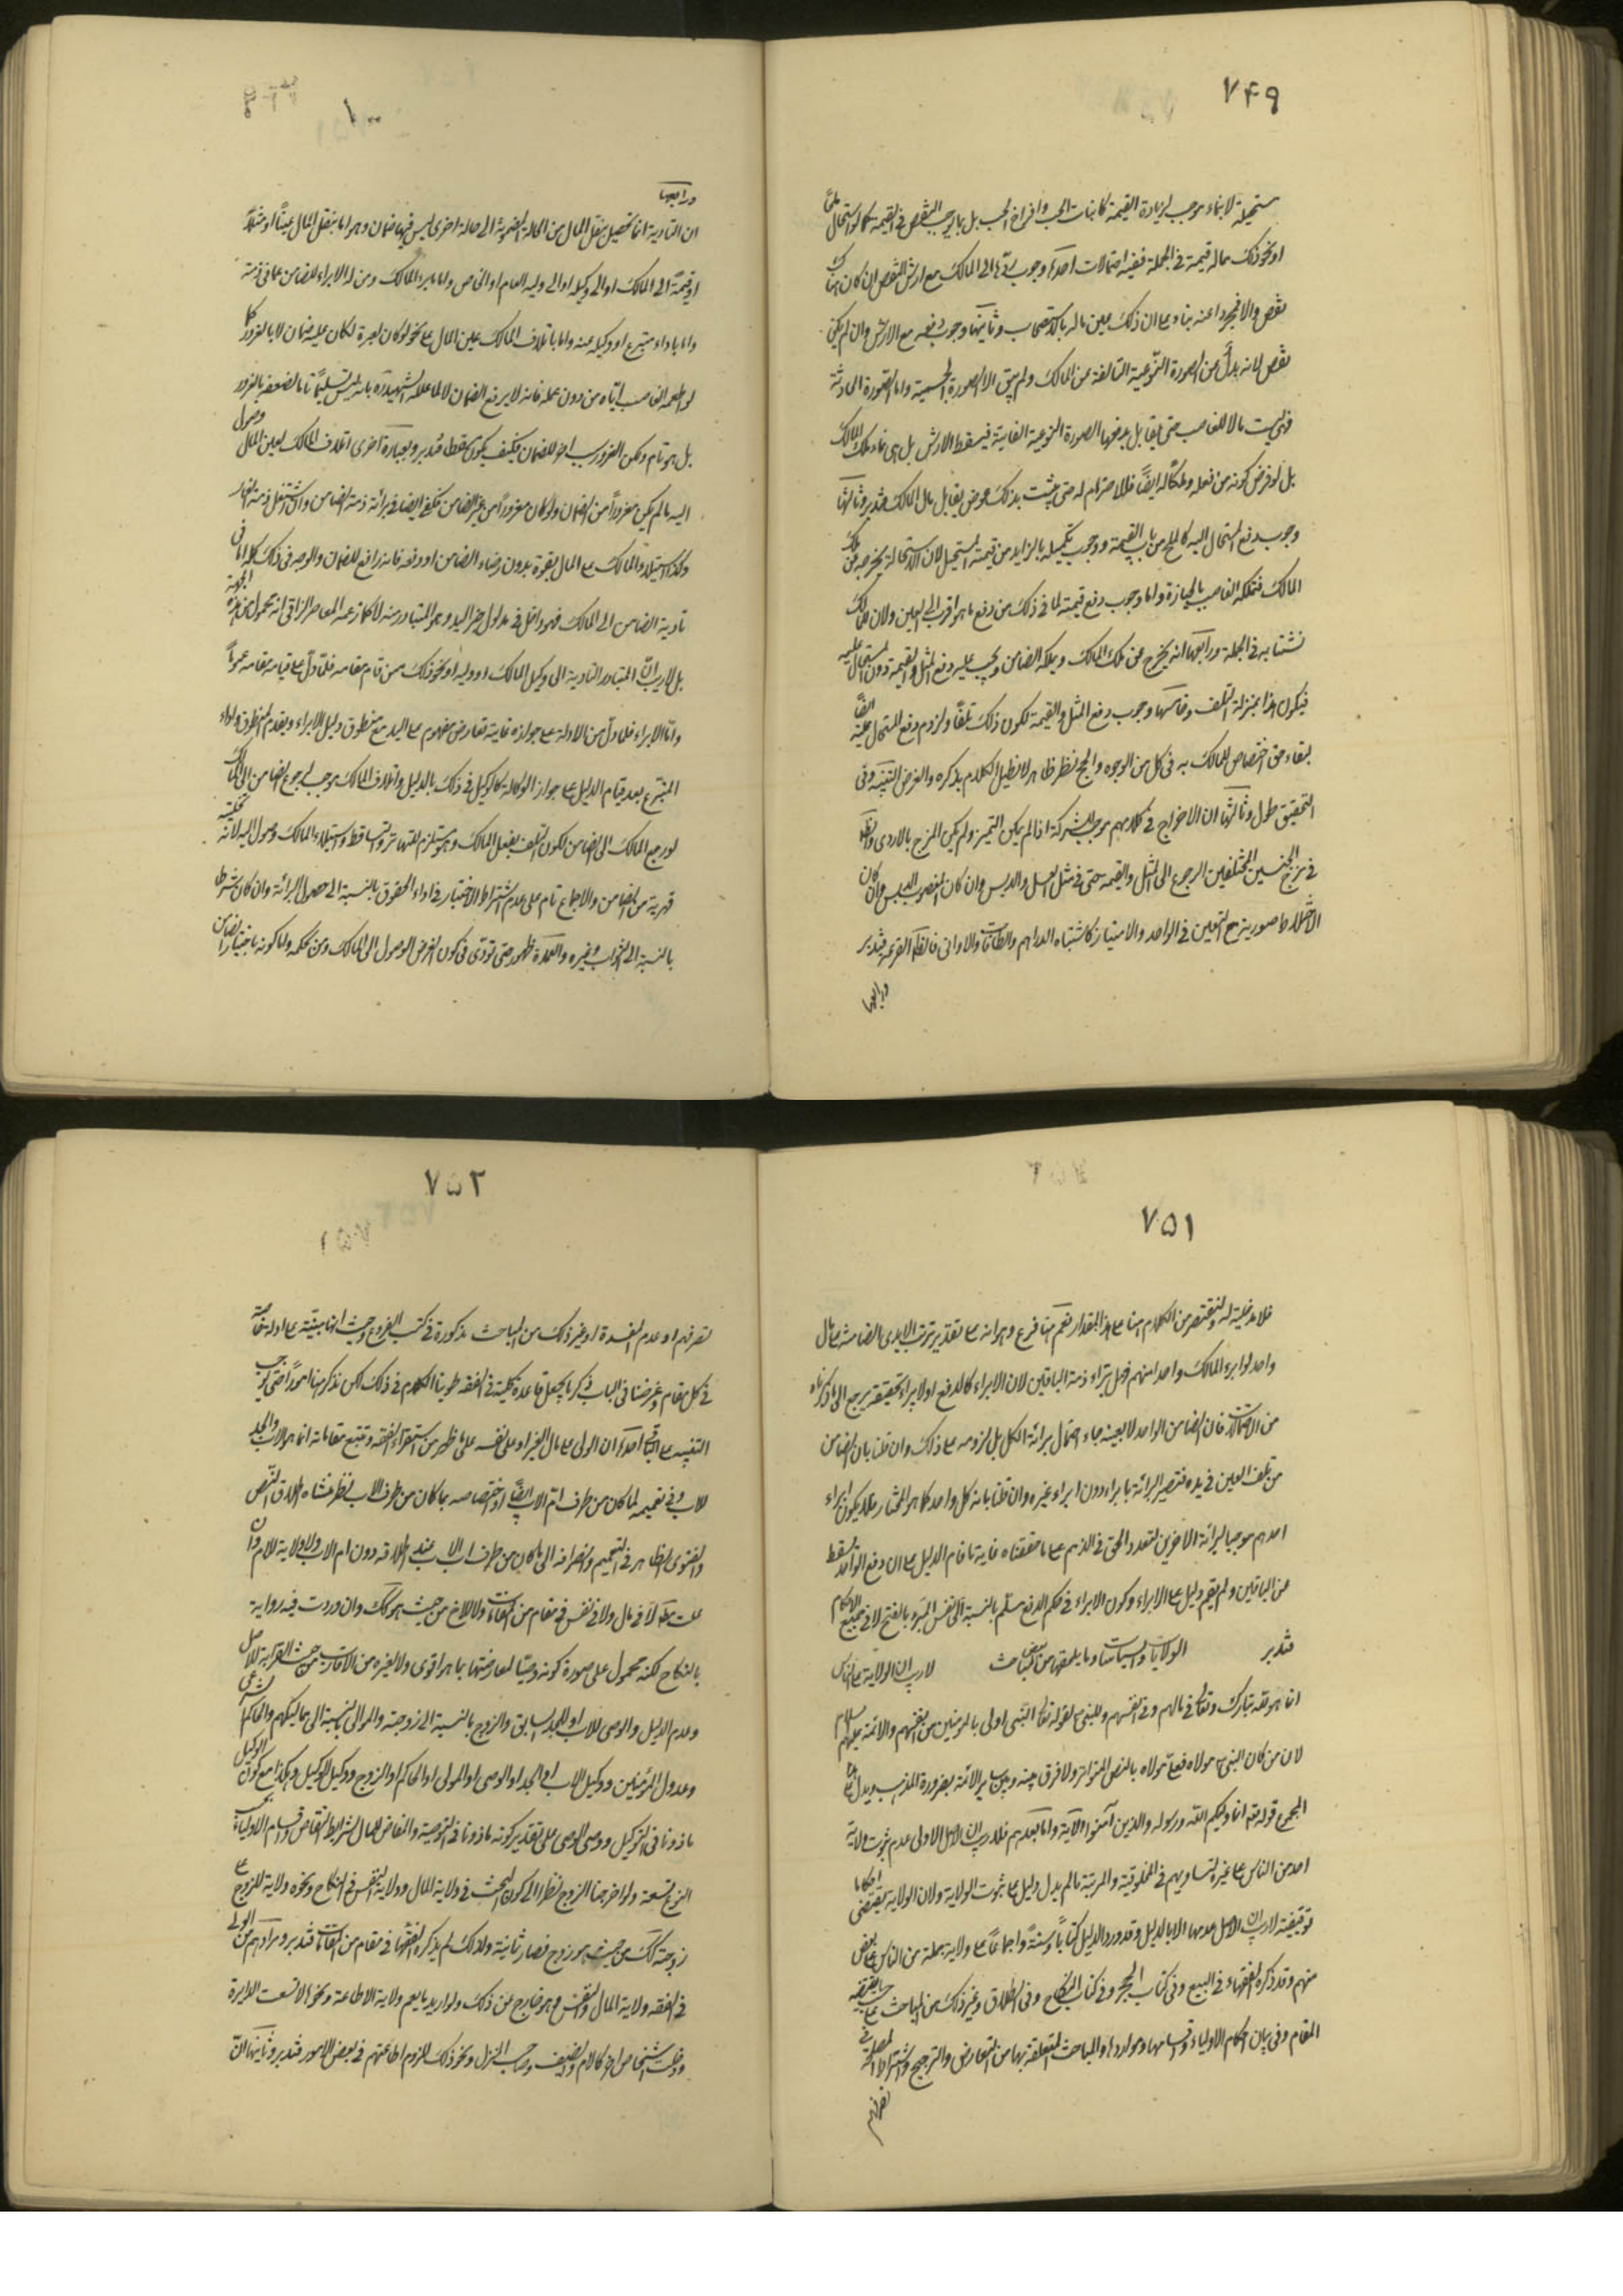 ٧۴٩
مستحيلة لابناء موجب لزيادة القيمة كانبات الحب وافراخ الحب بل بما يوجب النقص في القيمة كما لو استحال
او نحو ذلك مما له قيمة في الجملة ففيه احتمالات احدها وجوب ردّها الى المالك مع ارش النقص ان كان هناك
نقص والا فمجردا عنه بناء على ان ذلك عين ماله بالاستصحاب وثانيها وجوب دفعه مع الارش وان لم يكن
نقص لانه بدل عن الصورة النوعية التالفة عن المالك ولم يبق الا الصورة الجسمية واما الصورة الحادثة
فليست مالا للغاصب حتى يقابل بعوضها الصورة النوعية الفايتة فيسقط الارش بل هي نماء ملك المالك
بل لو فرض كونه من فعله وملكا له ايضا فلا احترام له حتى يثبت بذلك عوض يقابل مال المالك فتدبر وثالثها
وجوب دفع المستحال اليه كالملح من باب القيمة ووجوب تكميله بالزايد من قيمة المستحيل لان الاستحالة يخرجه عن ملك
المالك فتملكه الغاصب بالحيازة واما وجوب دفع قيمته لما في ذلك من دفع ما هو اقرب الى العين ولان للمالك
نشتا به في الجملة ورابعها انه يخرج عن ملك المالك ويملكه الضامن ويجب عليه دفع المثل والقيمة دون المستحال اليه
فيكون هذا بمنزلة التلف وخامسها وجوب دفع المثل والقيمة لكون ذلك تلفا ولزوم دفع المستحال عنه ايضا
لبقاء حق اختصاص للمالك به في كل من الوجوه والحج نظر ظاهر لا نطيل الكلام بذكره والغرض التنبيه وفي
التحقيق طول وثالثها ان الامزاج في كلامهم موجب للشركة اذا لم يكن التميز ولم يكن المزج بالاردى والظ
في مزج الجنسين المختلفين الرجوع الى المثل والقيمة حتى في مثل العسل والدبس وان كان المغصوب الدبس وان كان
الاختلاط صوريا مع التعين في الواحد والامتياز كاشتباه الدراهم والطاقات والاواني فالظ القرعة فتدبر
ورابعها
١٠٠
ورابعها
ان التادية انما تحصل بنقل المال من الحالة المضمونة الى حالة اخرى ليس فيها ضمان وهو اما بنقل المال عينا او مثلا
او قيمة الى المالك او الى وكيله او الى وليه العام او الخاص واما بابراء المالك ومن له الابراء للضامن عما في ذمته
واما باداء متبرع او وكيله عنه واما باتلاف المالك عين المال على نحو لو كان لغيره لكان عليه ضمان لا بالغرور كما
لو اطعمه الغاصب اياه من دون علمه فانه لا يرفع الضمان لا لما علله الشهيد ره بانه ليس تسليما تاما لضعفه بالغرور
بل هو تام ولكن الغرور سبب اخر للضمان فكيف يكون مسقطا فتدبر وبعبارة اخرى اتلاف المالك لعين المال وصول
اليه ما لم يكن مغرورا من الضمان ولو كان مغرورا من غير الضامن فكفى ايضا في برائة ذمة الضامن وان اشتغل ذمة الغار
وكذا استيلاء المالك على المال بقوة بدون رضاء الضامن او دفعه فانه رافع للضمان والوجه في ذلك كله اما في
تادية الضامن الى المالك فهو داخل في مدلول خبر اليد وهو المتبادر منه لا كما زعمه المعاصر النراقي انه محمول من هذه الجهة
بل لا ريب ان المتبادر التادية الى وكيل المالك او وليه او نحو ذلك ممن قام مقامه فلما دل على قيامه مقامه عموما
واما الابراء فلما دل من الادلة على جوازه غايته تعارض مفهوم على اليد مع منطوق دليل الابراء ويقدم المنطوق واداء
المتبرع بعد قيام الدليل على جواز الوكالة كالوكيل في ذلك بالدليل واتلاف المالك موجب لرجوع الضامن الى المالك
لو رجع المالك الى الضامن لكون التلف بفعل المالك وهو مستلزم للتهاتر والتساقط واستيلاء المالك وصول اليه لانه
قهرية من الضامن والاجماع تام على عدم اشتراط الاختيار في اداء الحقوق بالنسبة الى حصول البرائة وان كان شرطا
بالنسبة الى الثواب وغيره والعمدة ظهور حتى تؤدي في كون الغرض الوصول الى المالك ومن بحكمه واما كونه باختيار الضامن
٧۵١
فلا مدخلية له ولنقتصر من الكلام هنا على هذا المقدار نعم هنا فرع وهو انه على تقدير ترتب الايدي الضامنة على مال
واحد لو ابرء المالك واحدا منهم فهل يبرء ذمة الباقين لان الابراء كالدفع او لا يبراء تحقيقه يرجع الى ما ذكرناه
من الاحتمالات فان الضامن الواحد لا بعينه جاء احتمال برائة الكل بل لزومه على ذلك وان قلنا بان الضامن
من تلف العين في يده فتصير البرائة بابراءه دون ابراء غيره وان قلنا بانه كل واحد كما هو المختار فلا يكون ابراء
احدهم موجبا لبرائة الاخرين لتعدد الحق في الذمم على ما حققناه غاية ما قام الدليل على ان دفع الواحد مسقط
عن الباقين ولم يقم دليل على الابراء وكون الابراء في حكم الدفع مسلم بالنسبة الى نفس المبرء بالفتح لا في جميع الاحكام
فتدبر الولايات والسياسات وما يلحقها من بعض المباحث لا ريب ان الولاية على الناس
انما هو لله تبارك وتعالى في مالهم وفي انفسهم وللنبي ص لقوله تعالى النبي اولى بالمؤمنين من انفسهم والائمة عليهم السلام
لان من كان النبي مولاه فعلي مولاه بالنص المتواتر ولا فرق بينه وبين ساير الائمة بضرورة المذهب ويدل على هذا
المجموع قوله تعالى انما وليكم الله ورسوله والذين آمنوا الآية واما بعدهم فلا ريب ان الاصل الاولى عدم ثبوت ولاية
احد من الناس على غيره لتساويهم في المخلوقية والمرتبة ما لم يدل دليل على ثبوت الولاية ولان الولاية يقتضي احكاما
توقيفية لا ريب ان الاصل عدمها الا بالدليل وقد ورد الدليل كتابا وسنة واجماعا على ولاية جملة من الناس على بعض
منهم وقد ذكره الفقهاء في البيع وفي كتاب الحجر وفي كتاب النكاح وفي الطلاق وغير ذلك من المباحث على حسب ما يقتضيه
المقام وفي بيان احكام الاولياء واقسامها ومواردها والمباحث المتعلقة بها من التعارض والترجيح واشتراط المصلحة في
تصرفهم
٧۵٢
تصرفهم او عدم المفسدة او غير ذلك من المباحث مذكورة في كتب الفروع وحيث انها مبينة على ادلة خاصة
في كل مقام وغرضنا في الباب ذكر ما يجعل قاعدة كلية في الفقه طوينا الكلام في ذلك لكن نذكر هنا امورا حتى يجب
التنبيه عليها احدها ان الولي على مال الغير او على نفسه على ما ظهر من استقراء الفقه وتتبع مقاماته انما هو الاب والجد
للاب وفي تعميمه لما كان من طرف ام الاب ايضا او اختصاصه بما كان من طرف الاب نظر منشاه اطلاق النص
والفتوى الظاهر في التعميم وانصرافه الى ما كان من طرف اب الاب عند اطلاقه دون ام الاب ولا ولاية للام وان
علت مط لا في مال ولا في نفس في مقام من المقامات ولا للاخ من حيث هو كك وان وردت فيه رواية
بالنكاح لكنه محمول على صورة كونه وصيا لمعارضتها بما هو اقوى ولا لغيره من الاقارب من حيث القرابة للاصل
وعدم الدليل والوصي للاب او للجد السابق والزوج بالنسبة الى زوجته والموالي بالنسبة الى مماليكهم والحاكم الشرعي
وعدول المؤمنين ووكيل الاب او الجد او الوصي او المولى او الحاكم او الزوج ووكيل الوكيل وهكذا مع كون الوكيل
ماذونا في التوكيل ووصي الوصي على تقدير كونه ماذونا في التوصية والتقاص للمال بشرايط التقاص واقسام الاولياء بحسب
النوع تسعة ولو اخرجنا الزوج نظرا الى كون البحث في ولاية المال وولاية النفس في النكاح ونحوه ولا ولاية للزوج على
زوجته كك من حيث هو زوج فصار ثمانية ولذلك لم يذكره الفقهاء في مقام من المقامات فتدبر ومرادهم من الولي
في الفقه ولاية المال والنفس وهو خارج عن ذلك ولو اريد ما يعم ولاية الاطاعة ونحوها لاتسعت الدايرة
ودخلت اشخاص اخر كالام والضيف وصاحب المنزل ونحو ذلك للزوم اطاعتهم في بعض الامور فتدبر وثانيها ان